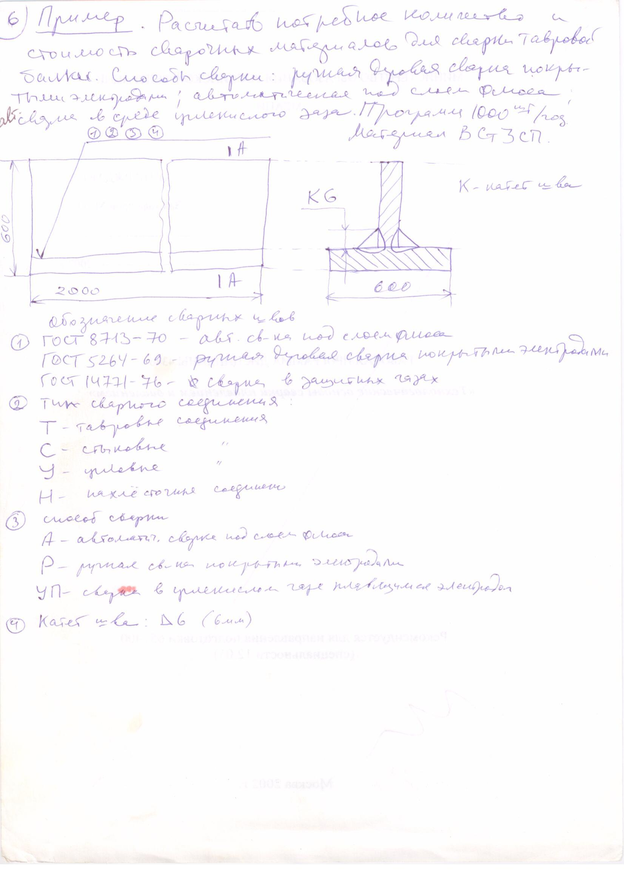 6) Пример. Расчитать потребное количество и
стоимость сварочных материалов для сварки тавровой
балки. Способы сварки: ручная дуговая сварка покры-
тыми электродами; автоматическая под слоем флюса;
в среде углекислого газа. Программ 1000 шт/год
① ② ③ ④ Материал ВСт3сп.
1А
К6
К - катет шва
600
1А
2000
600
Обозначение сварных швов
① ГОСТ 8713-70 - авт. св-ка под слоем флюса
ГОСТ 5264-69 - ручная дуговая сварка покрытыми электродами
ГОСТ 14771-76 - сварка в защитных газах
② тип сварного соединения:
Т - тавровые соединения
С - стыковые "
У - угловые "
Н - нахлёсточные соединен
③ способ сварки
А - автомати. сварке под слоем флюса
Р - ручная св-ка покрытыми электродами
УП - сварка в углекислом газе плавящимся электродом
④ Катет шва: Δ6 (6мм)